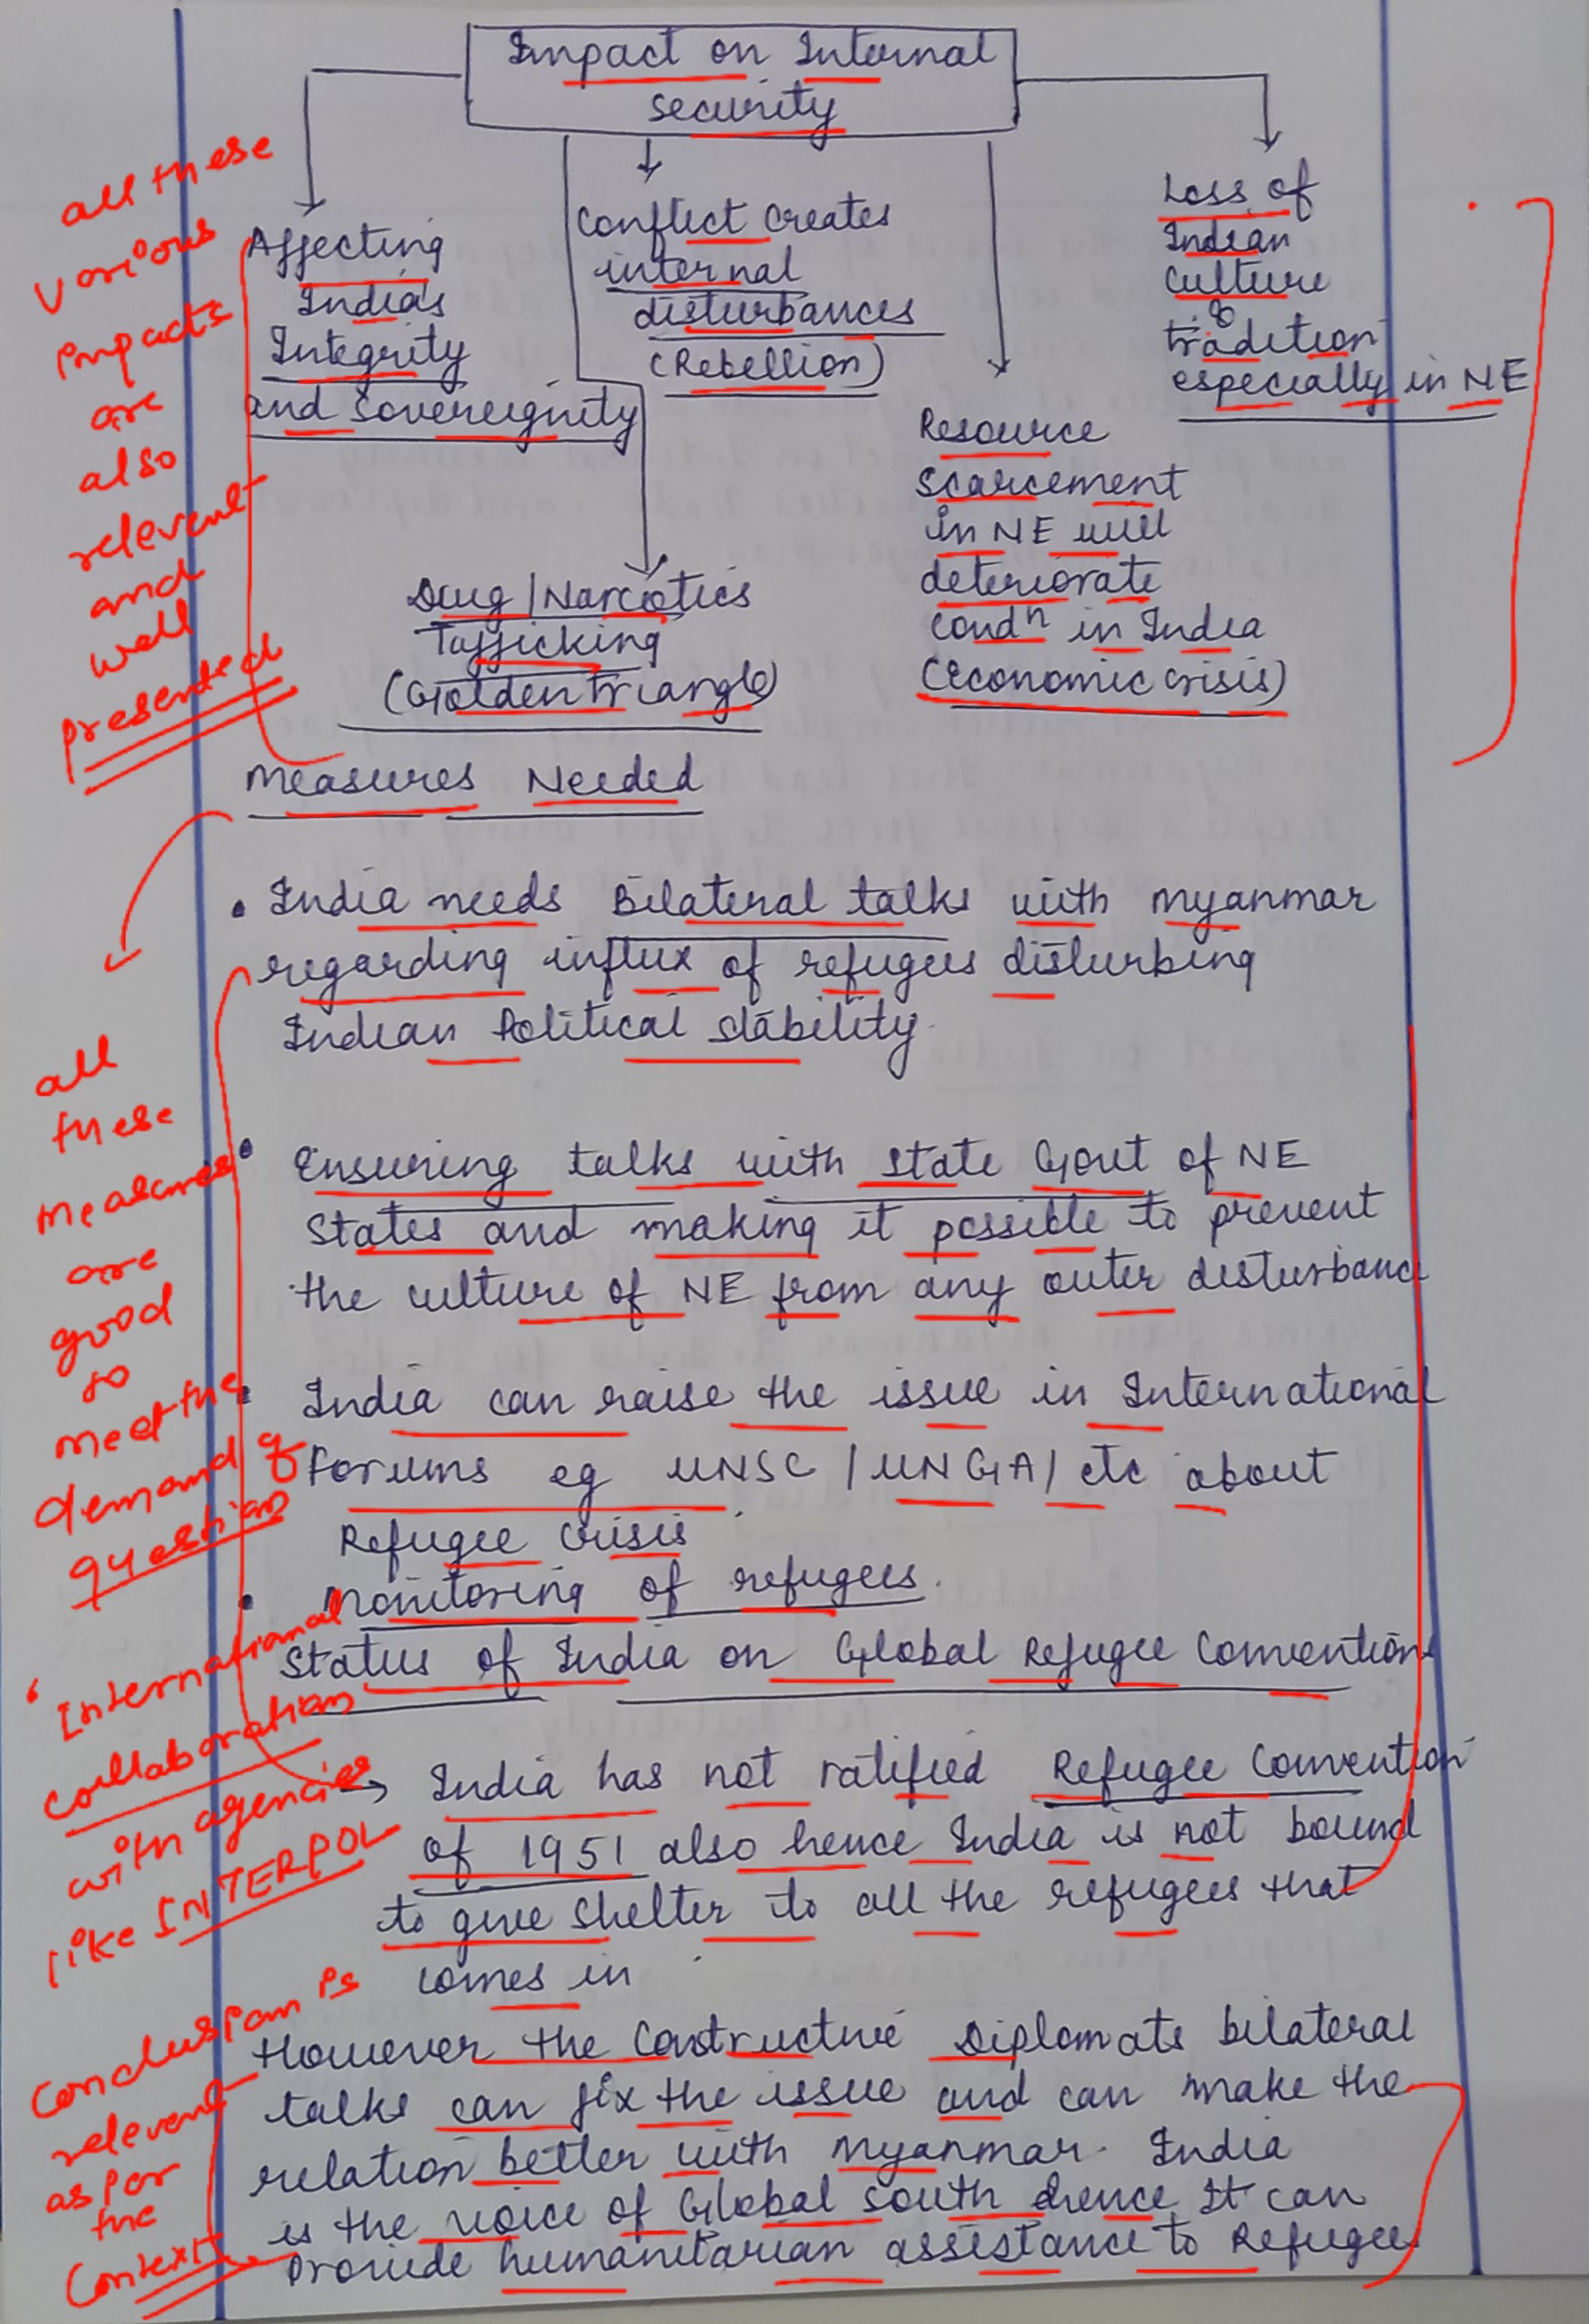 Impact on Internal
security
Affecting
India's
Integrity
and Sovereignity
Conflict creates
internal
disturbances
(Rebellion)
Loss of
Indian
Culture
&
tradition
especially in NE
Resource
scarcement
in NE will
deteriorate
condn in India
(Economic crisis)
Drug / Narcotics
Tafficking
(Golden Triangle)
all these
various
impacts
are
also
relevent
and
well
presented
Measures Needed
• India needs Bilateral talks with Myanmar
regarding influx of refugees disturbing
Indian Political stability.
• Ensuring talks with state Govt of NE
States and making it possible to prevent
the culture of NE from any outer disturbance
• India can raise the issue in International
Forums eg UNSC / UNGA / etc about
Refugee Crisis
• Monitoring of refugees.
all
these
measures
are
good
to
meet the
demand of
question
Status of India on Global Refugee Conventions
→ India has not ratified Refugee Convention
of 1951 also hence India is not bound
to give shelter to all the refugees that
comes in
• International
collaboration
with agencies
like INTERPOL
However the Constructive Diplomats bilateral
talks can fix the issue and can make the
relation better with Myanmar. India
is the voice of Global south hence It can
Provide humanitarian assistance to Refugees
Conclusion is
relevent
as per
the
Context